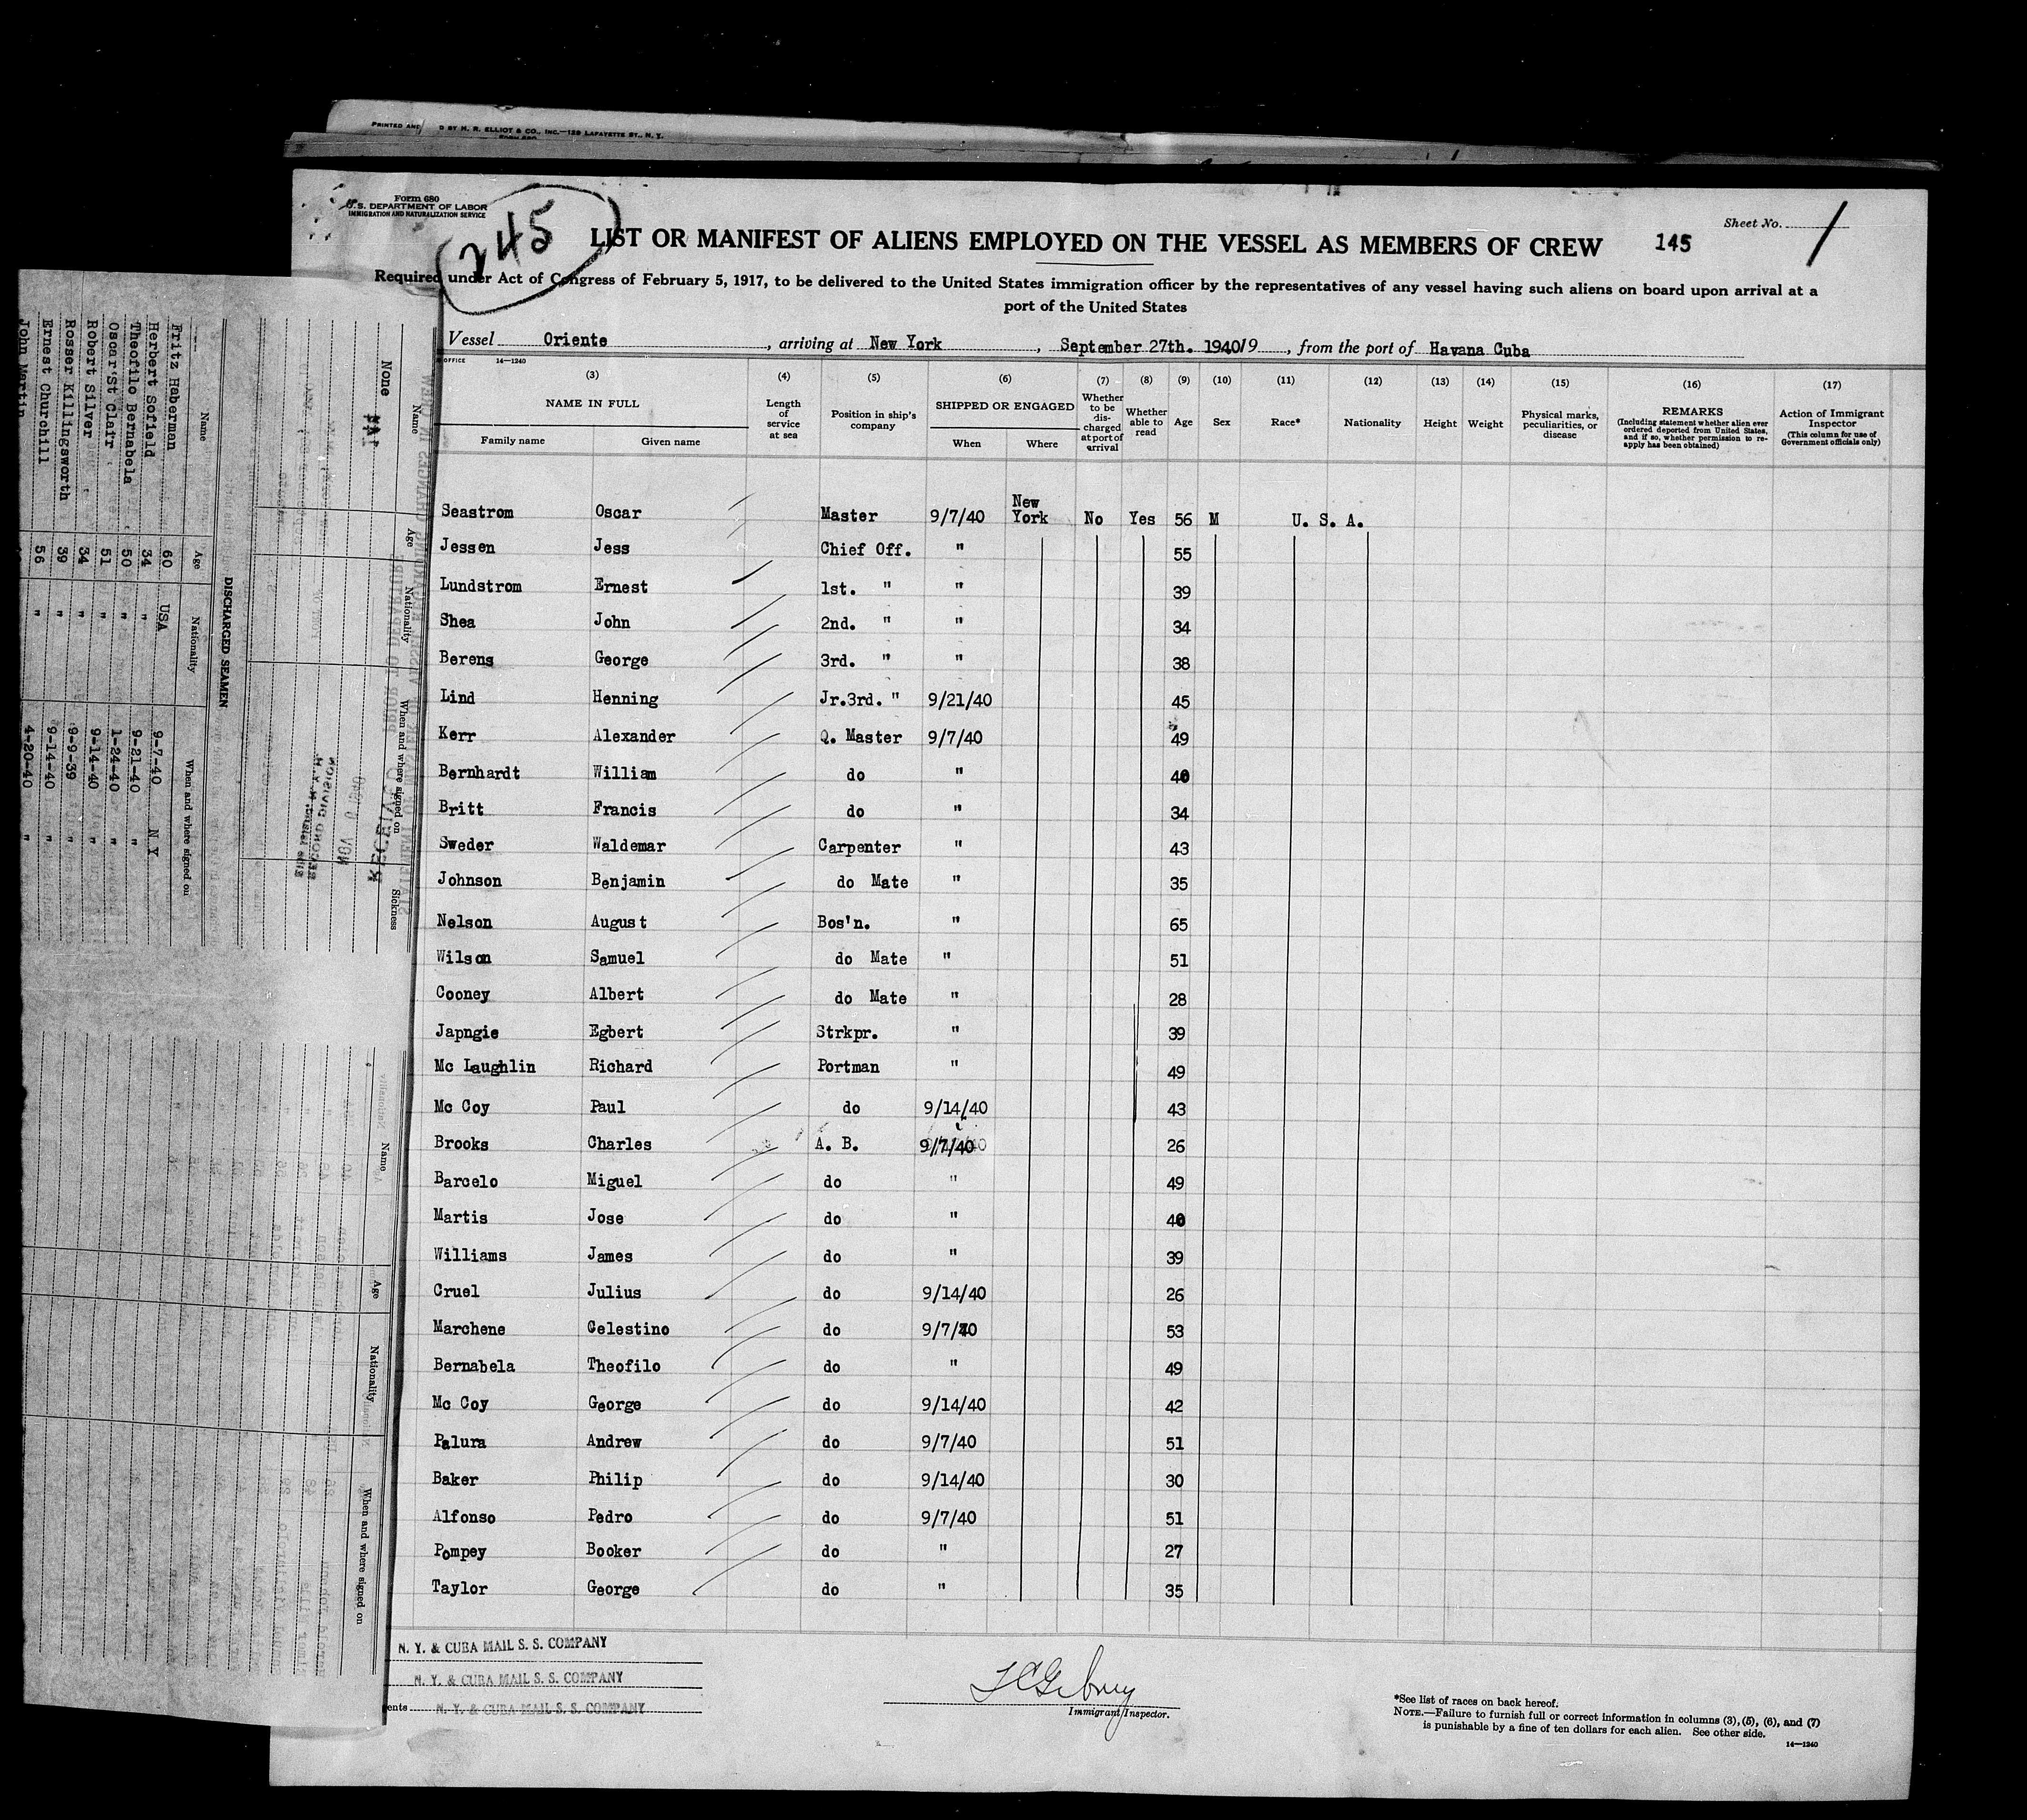 PRINTED AND D BY H. R. ELLIOT & CO., INC.—129 LAFAYETTE ST., N. Y.
Form 680
U.S. DEPARTMENT OF LABOR
IMMIGRATION AND NATURALIZATION SERVICE
245
Sheet No. 1
LIST OR MANIFEST OF ALIENS EMPLOYED ON THE VESSEL AS MEMBERS OF CREW 145
Required under Act of Congress of February 5, 1917, to be delivered to the United States immigration officer by the representatives of any vessel having such aliens on board upon arrival at a
port of the United States
Vessel Oriente, arriving at New York, September 27th. 1940/9, from the port of Havana Cuba
OFFICE 14—1240
(3) (4) (5) (6) (7) (8) (9) (10) (11) (12) (13) (14) (15) (16) (17)
NAME IN FULL
Family name Given name
Length of service at sea
Position in ship's company
SHIPPED OR ENGAGED
When Where
Whether to be discharged at port of arrival
Whether able to read
Age
Sex
Race*
Nationality
Height
Weight
Physical marks, peculiarities, or disease
REMARKS
(Including statement whether alien ever ordered deported from United States, and if so, whether permission to reapply has been obtained)
Action of Immigrant Inspector
(This column for use of Government officials only)
Seastrom Oscar Master 9/7/40 New York No Yes 56 M U. S. A.
Jessen Jess Chief Off. " 55
Lundstrom Ernest 1st. " " 39
Shea John 2nd. " " 34
Berens George 3rd. " " 38
Lind Henning Jr.3rd. " 9/21/40 45
Kerr Alexander Q. Master 9/7/40 49
Bernhardt William do " 40
Britt Francis do " 34
Sweder Waldemar Carpenter " 43
Johnson Benjamin do Mate " 35
Nelson August Bos'n. " 65
Wilson Samuel do Mate " 51
Cooney Albert do Mate " 28
Japngie Egbert Strkpr. " 39
Mc Laughlin Richard Portman " 49
Mc Coy Paul do 9/14/40 43
Brooks Charles A. B. 9/7/40 26
Barcelo Miguel do " 49
Martis Jose do " 40
Williams James do " 39
Cruel Julius do 9/14/40 26
Marchene Celestino do 9/7/40 53
Bernabela Theofilo do " 49
Mc Coy George do 9/14/40 42
Palura Andrew do 9/7/40 51
Baker Philip do 9/14/40 30
Alfonso Pedro do 9/7/40 51
Pompey Booker do " 27
Taylor George do " 35
N. Y. & CUBA MAIL S. S. COMPANY
N. Y. & CUBA MAIL S. S. COMPANY
ents N. Y. & CUBA MAIL S. S. COMPANY
Immigrant Inspector.
*See list of races on back hereof.
NOTE.—Failure to furnish full or correct information in columns (3), (5), (6), and (7)
is punishable by a fine of ten dollars for each alien. See other side.
14—1240
Name Age Nationality When and where signed on Sickness
None
RECEIVED
NOV 1940
RECORD DIVISION
DISCHARGED SEAMEN
Name Age Nationality When and where signed on
Fritz Haberman 60 USA 9-7-40 N Y
Herbert Sofield 34 " 9-21-40 "
Theofilo Bernabela 50 " 1-24-40 "
Oscar St Clair 51 " 9-14-40 "
Robert Silver 34 " 9-9-39 "
Rosser Killingsworth 39 " 9-14-40 "
Ernest Churchill 56 " 4-20-40 "
John Martin
Name Age Nationality When and where signed on